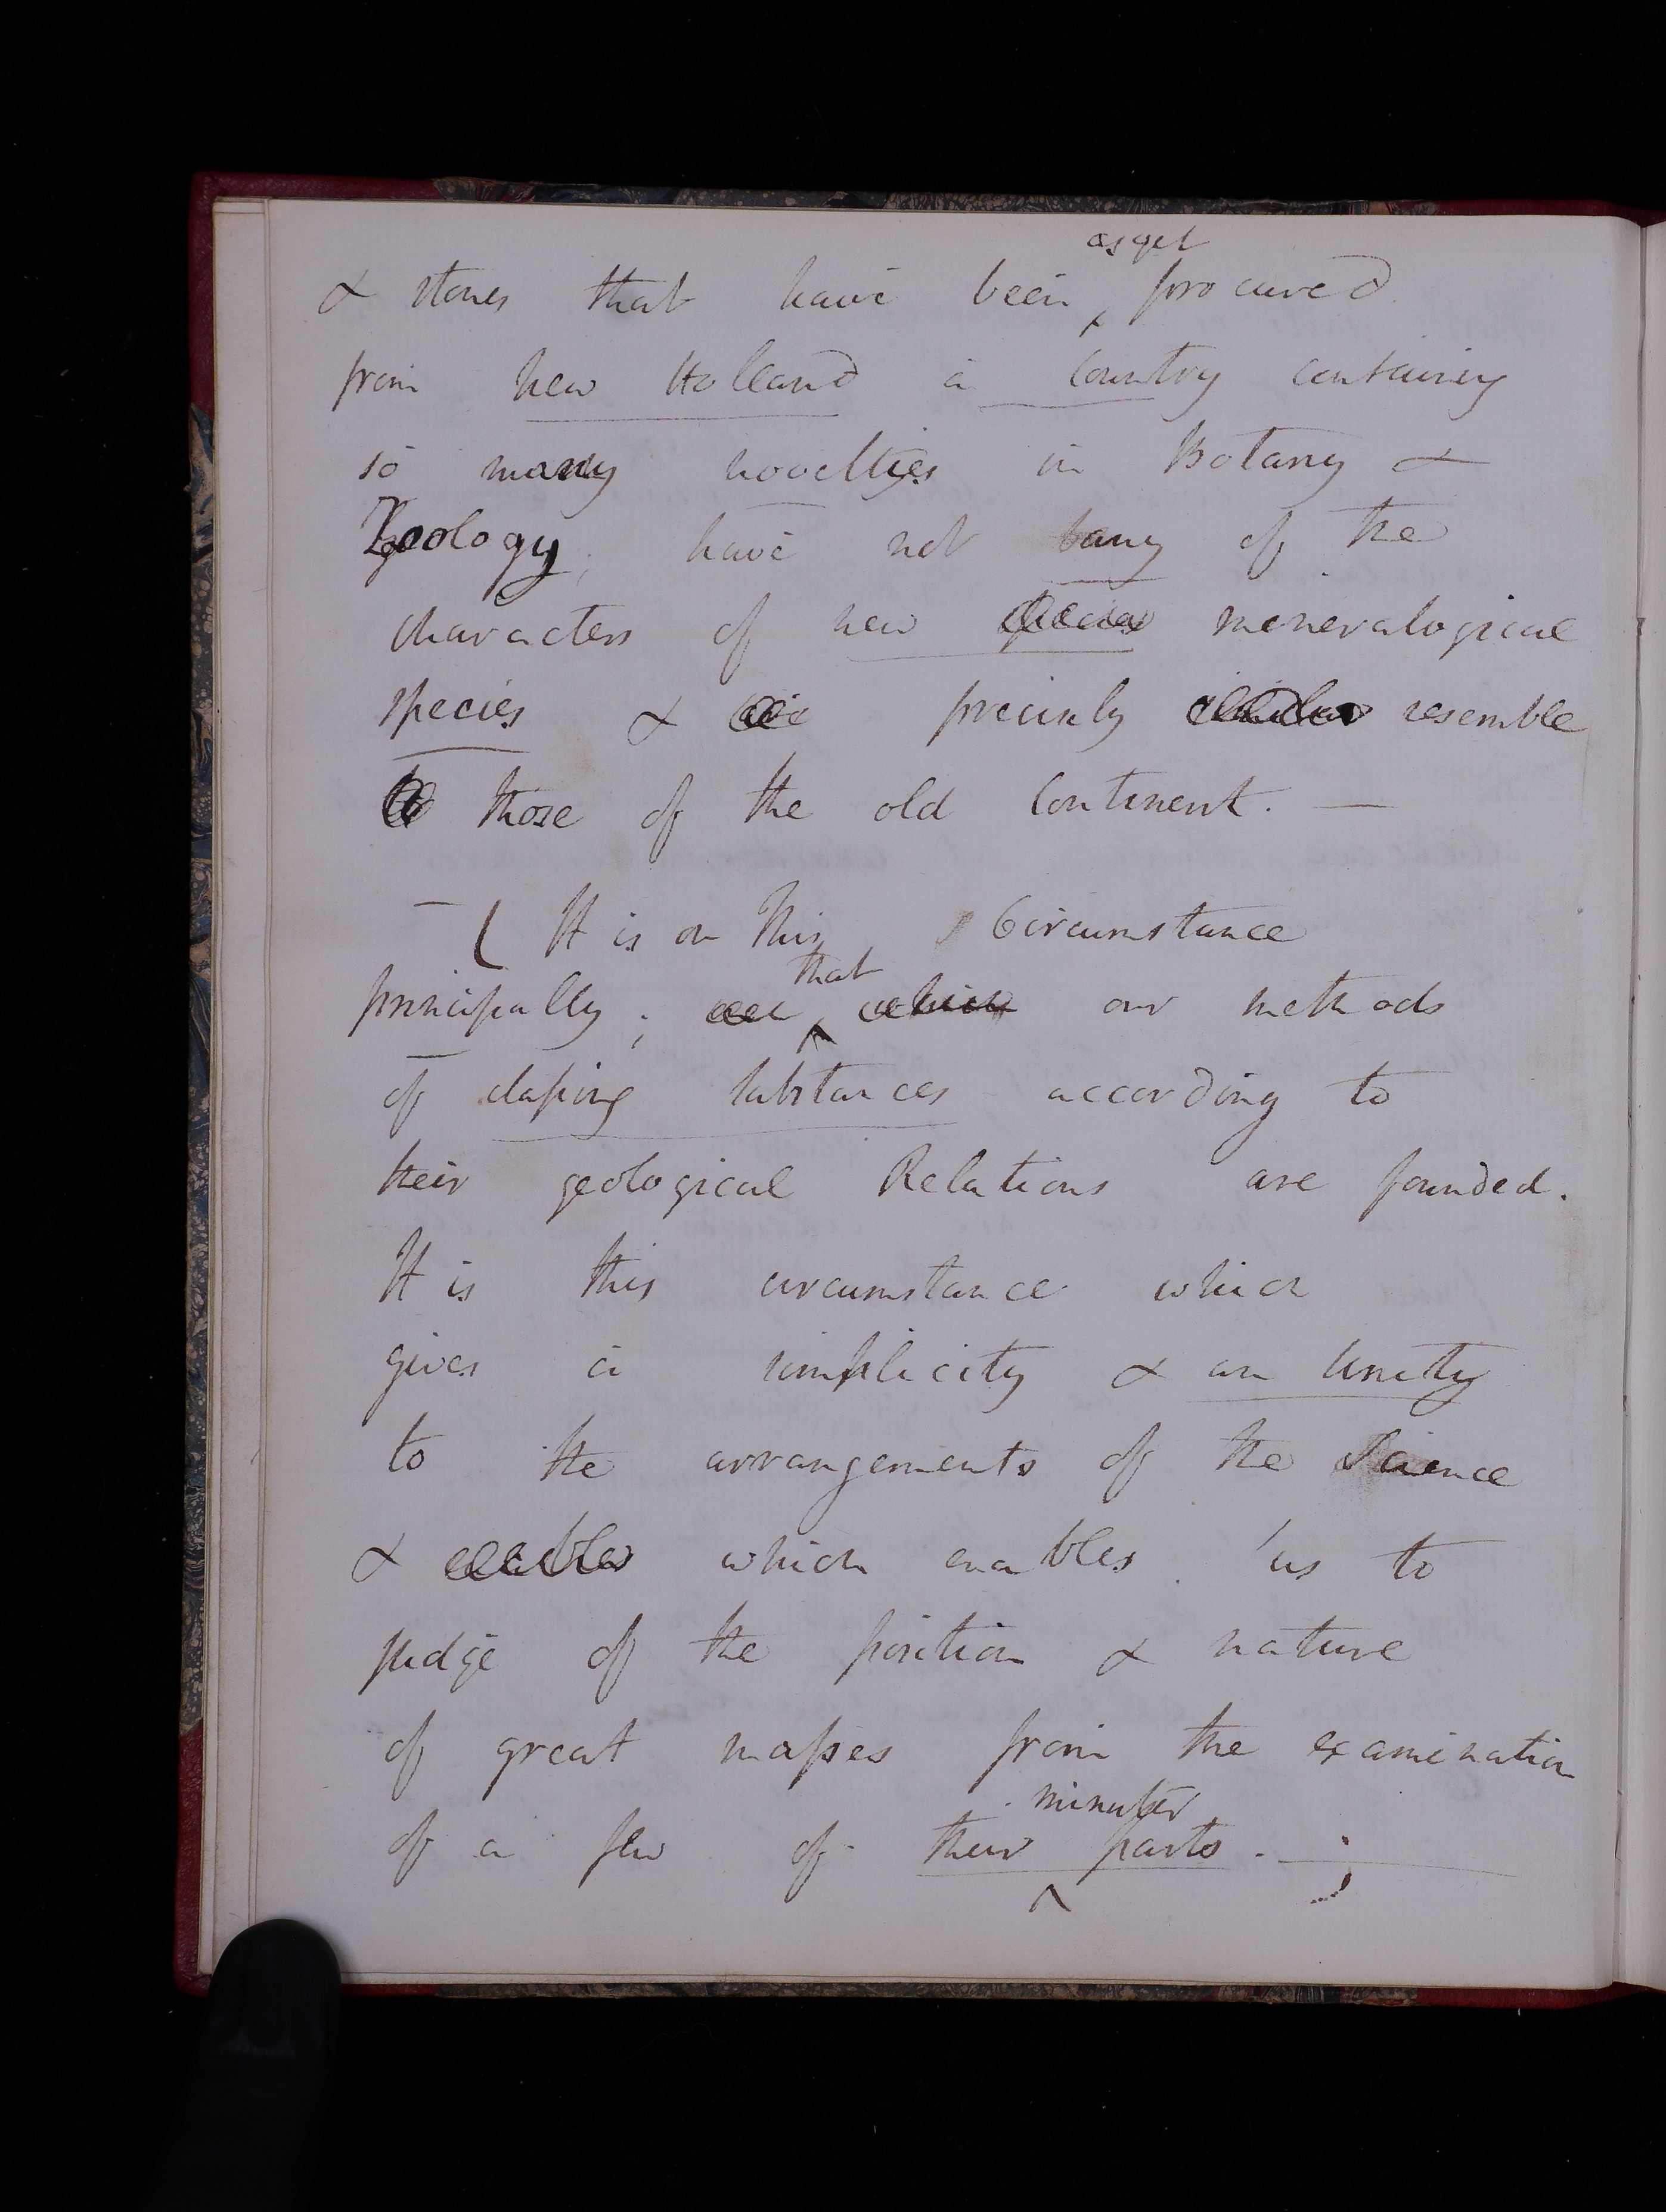 as yet
& stones that have been procured
from new Holland a Country containing
so many novelties in Botany &
Zoology; have not any of the
characters of new species meneralogical
species & are precisely similar resemble
to those of the old Continent. —
— ( It is on this, Circumstance
that
principally; which our methods
of claſsing substances according to
their geological Relations are founded.
It is this circumstance which
gives a simplicity & an Unity
to the arrangements of the Science
& enables which enables us to
judge of the position & nature
of great maſses from the examination
minuter
of a few of their parts. —